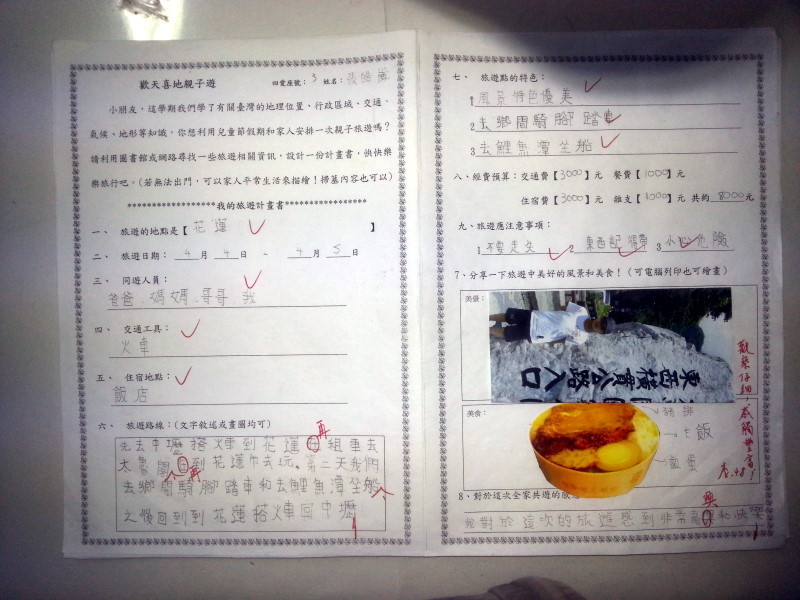 歡天喜地親子遊
四愛座號：3 姓名：
小朋友，這學期我們學了有關臺灣的地理位置、行政區域、交通、
氣候、地形等知識，你想利用兒童節假期和家人安排一次親子旅遊嗎？
請利用圖書館或網路尋找一些旅遊相關資訊，設計一份計畫書，快快樂
樂旅行吧。(若無法出門，可以家人平常生活來描繪！掃墓內容也可以)
******************我的旅遊計畫書*****************
一、 旅遊的地點是【花蓮】
二、 旅遊日期： 4 月 4 日 - 4 月 5 日
三、 同遊人員：
爸爸、媽媽、哥哥、我
四、 交通工具：
火車
五、 住宿地點：
飯店
六、 旅遊路線：(文字敘述或畫圖均可)
先去中壢搭火車到花蓮 再 租車去
太魯閣 再 到花蓮市去玩。第二天我們
去鄉間騎腳踏車和去鯉魚潭坐船
之後回到到花蓮搭火車回中壢
七、 旅遊點的特色：
1 風景特色優美
2 去鄉間騎腳踏車
3 去鯉魚潭坐船
八、經費預算：交通費【3000】元 餐費【1000】元
住宿費【3000】元 雜支【1000】元 共約 8000 元
九、旅遊應注意事項：
1 不要走失 2 東西記得帶 3 小心危險
7、分享一下旅遊中美好的風景和美食！(可電腦列印也可繪畫)
美景：
東西橫貫公路入口
觀察仔細，感觸豐富！
美食：
豬排
飯
滷蛋
8、對於這次全家共遊的感
我對於這次的旅遊感到非常高興和快樂